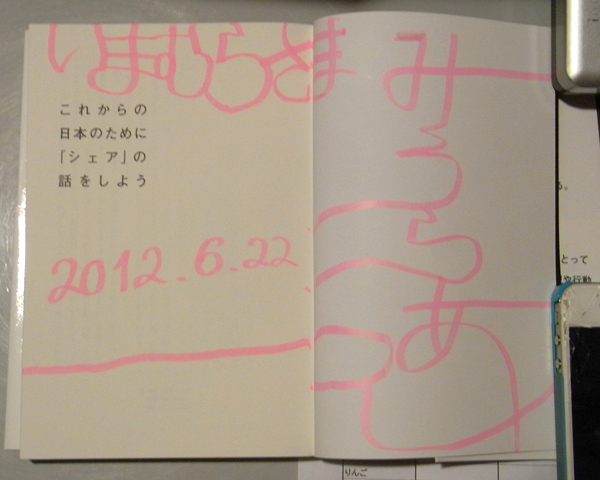 いまむらさま
これからの
日本のために
「シェア」の
話をしよう
2012.6.22
みうらあ
とって
や行動
りんご